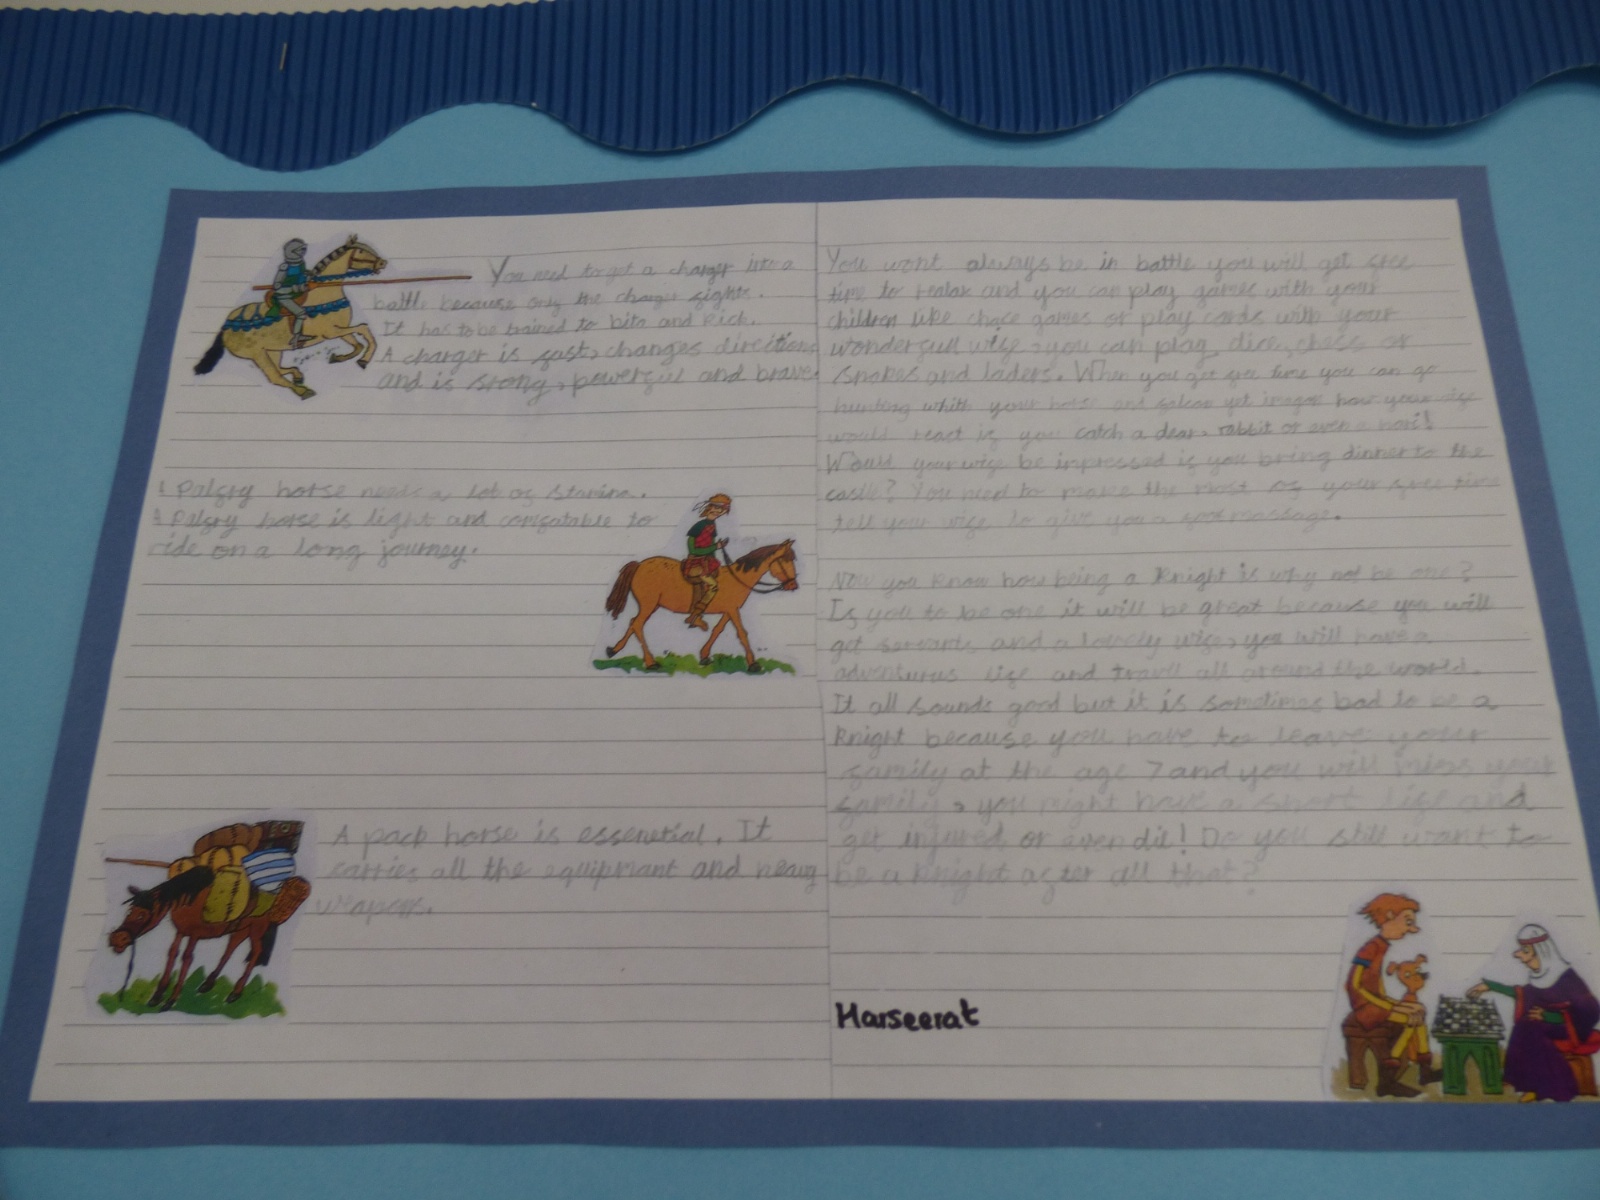 You need to get a charger into a
battle because only the charger fights.
It has to be trained to bite and kick.
A charger is fast, changes directions
and is strong, powerful and brave.
A palfry horse needs a lot of stamina.
A palfry horse is light and comfatable to
ride on a long journey.
A pack horse is essenetial. It
carries all the equipmant and heavy
weapons.
You wont always be in battle you will get free
time to realax and you can play games with your
children like chace games or play cards with your
wonderfull wife, you can play, dice, chess or
snakes and laders. When you get free time you can go
hunting whith your horse and falcon yet imagen how your wife
would react if you catch a dear, rabbit or even a
Would your wife be inpressed if you bring dinner to the
castle? You need to make the most of your free time
tell your wife to give you a massage.
Now you know how being a knight is why not be one?
If you to be one it will be great because you will
get servants and a lovely wife, you will have a
adventurus life and travll all around the world.
It all sounds good but it is somtimes bad to be a
knight because you have to leave your
family at the age 7 and you will miss your
family, you might have a short life and
get injured or even die! Do you still want to
be a knight after all that?
Harseerat